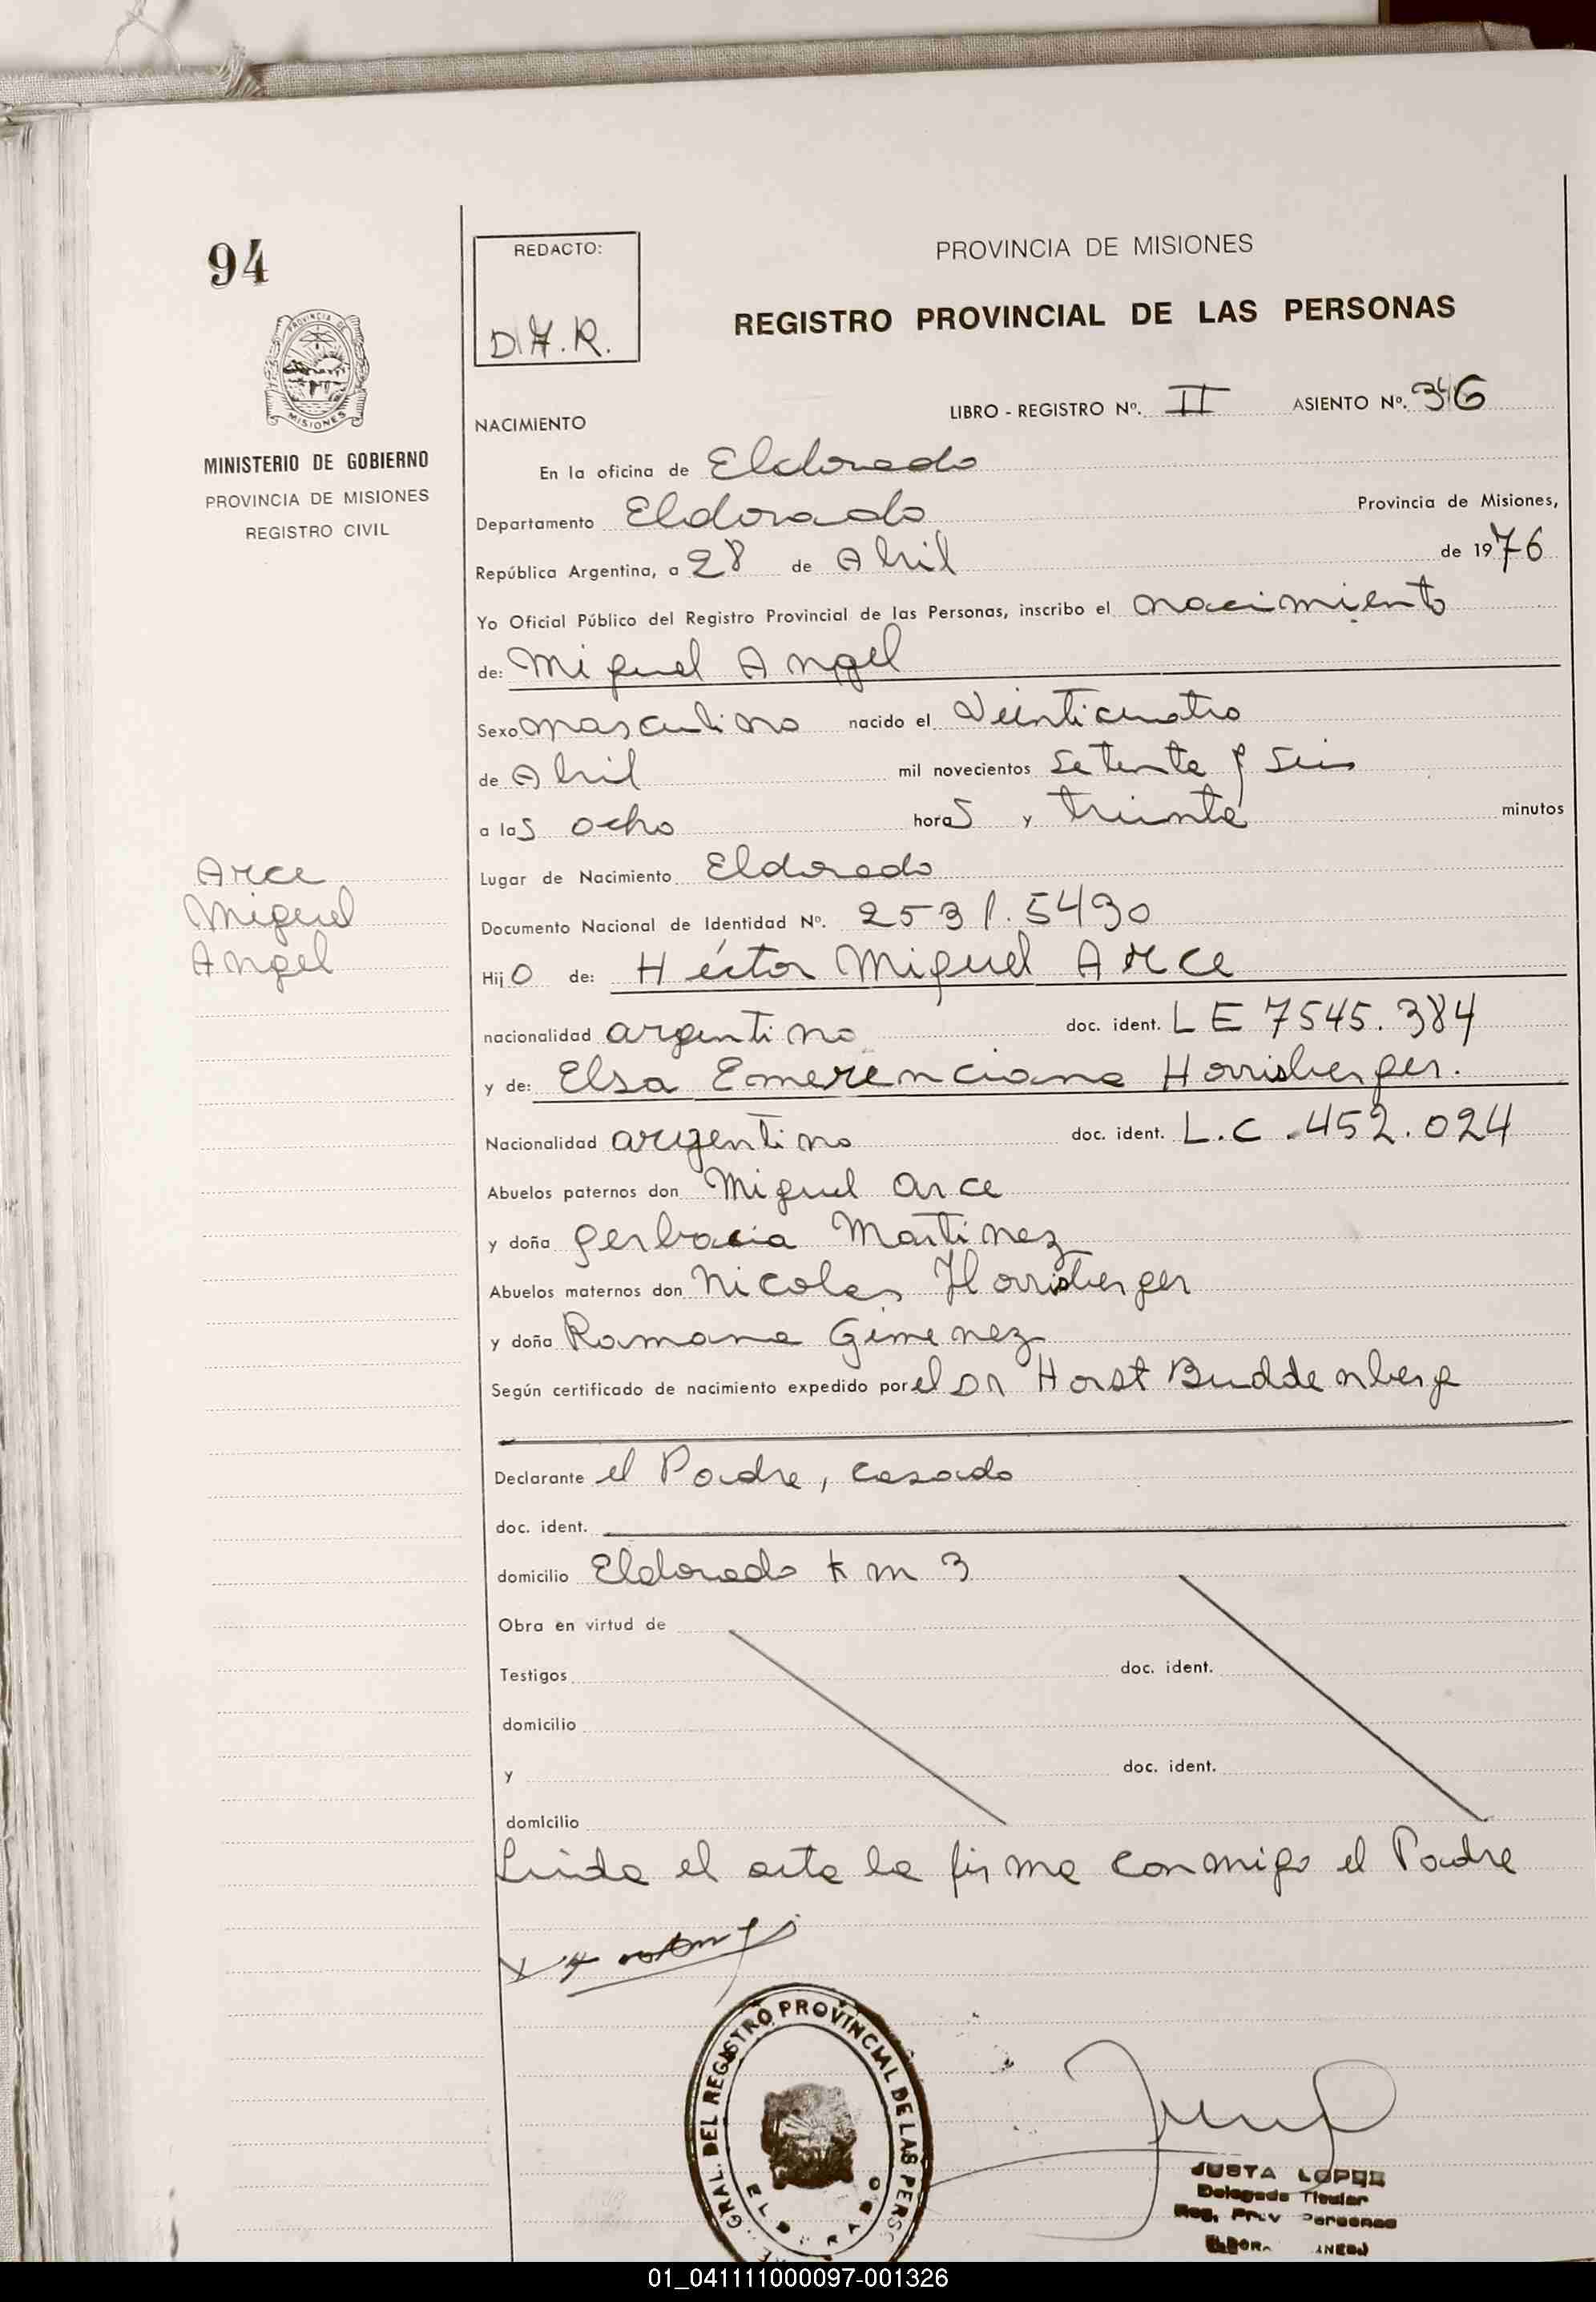 94
REDACTO:
D.F.R.
PROVINCIA DE MISIONES
REGISTRO PROVINCIAL DE LAS PERSONAS
PROVINCIA DE
MISIONES
MINISTERIO DE GOBIERNO
PROVINCIA DE MISIONES
REGISTRO CIVIL
LIBRO - REGISTRO Nº. II ASIENTO Nº. 346
NACIMIENTO
En la oficina de Eldorado
Departamento Eldorado Provincia de Misiones,
República Argentina, a 28 de Abril de 1976
Yo Oficial Público del Registro Provincial de las Personas, inscribo el nacimiento
de: Miguel Angel
Sexo masculino nacido el Veinticuatro
de Abril mil novecientos setenta y seis
a las ocho horas y treinta minutos
Arce
Miguel
Angel
Lugar de Nacimiento Eldorado
Documento Nacional de Identidad Nº. 2531.5490
Hijo de: Héctor Miguel Arce
nacionalidad argentino doc. ident. LE 7545.384
y de: Elsa Emerenciana Horrisberger.
Nacionalidad argentino doc. ident. L.C. 452.024
Abuelos paternos don Miguel Arce
y doña Gerbacia Martinez
Abuelos maternos don Nicolas Horrisberger
y doña Ramona Gimenez
Según certificado de nacimiento expedido por el Dr Horst Buddenberg
Declarante el Padre, casado
doc. ident.
domicilio Eldorado km 3
Obra en virtud de
Testigos doc. ident.
domicilio
y doc. ident.
domicilio
Leida el acta la firma conmigo el Padre
GRAL. DEL REGISTRO PROVINCIAL DE LAS PERS
ELDORADO
JUSTA LOPEZ
Delegada Titular
Reg. Prov Personas
01_041111000097-001326